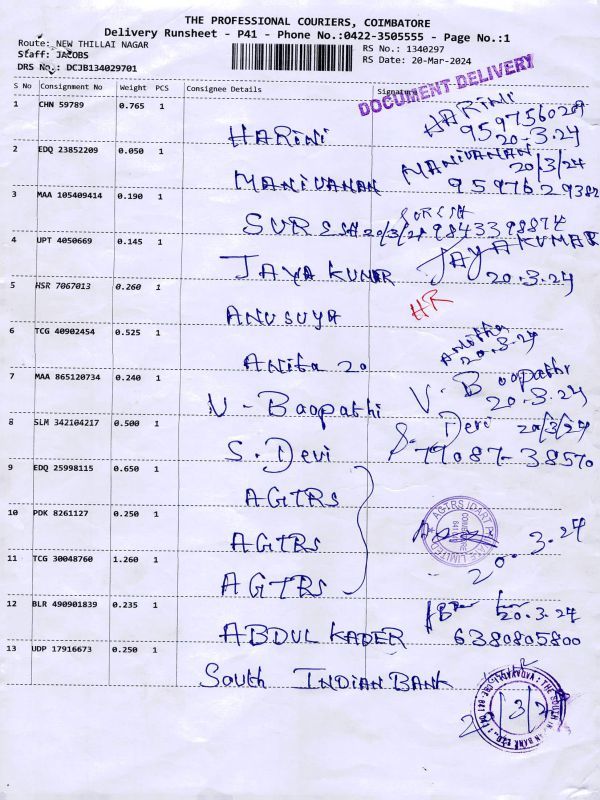 THE PROFESSIONAL COURIERS, COIMBATORE
Delivery Runsheet - P41 - Phone No.:0422-3505555 - Page No.:1
Route: NEW THILLAI NAGAR
Staff: JACOBS
DRS No.: DCJB134029701
RS No.: 1340297
RS Date: 20-Mar-2024
DOCUMENT DELIVERY
S No Consignment No Weight PCS Consignee Details Signature
1 CHN 59789 0.765 1
HARINI HARINI
9597560209
20-3.24
2 EDQ 23852209 0.050 1
MANIVANAN MANIVANAN
20/3/24
9597629382
3 MAA 105409414 0.190 1
SURESH 20/3/24 SURESH
9843398874
4 UPT 4050669 0.145 1
JAYA KUMAR JAYAKUMAR
20.3.24
5 HSR 7067013 0.260 1
ANUSUYA HR
6 TCG 40902454 0.525 1
Anita 20 Anitha
20.3.24
7 MAA 865120734 0.240 1
V - Boopathi V. Boopathi
20-3.24
8 SLM 342104217 0.500 1
S. Devi S. Devi 20/3/24
79087-38570
9 EDQ 25998115 0.650 1
AGTRS
10 PDK 8261127 0.250 1
AGTRS 20.3.24
11 TCG 30048760 1.260 1
AGTRS
12 BLR 490901839 0.235 1
ABDUL KADER 20.3.24
6380805800
13 UDP 17916673 0.250 1
South INDIAN BANK
20/3/2